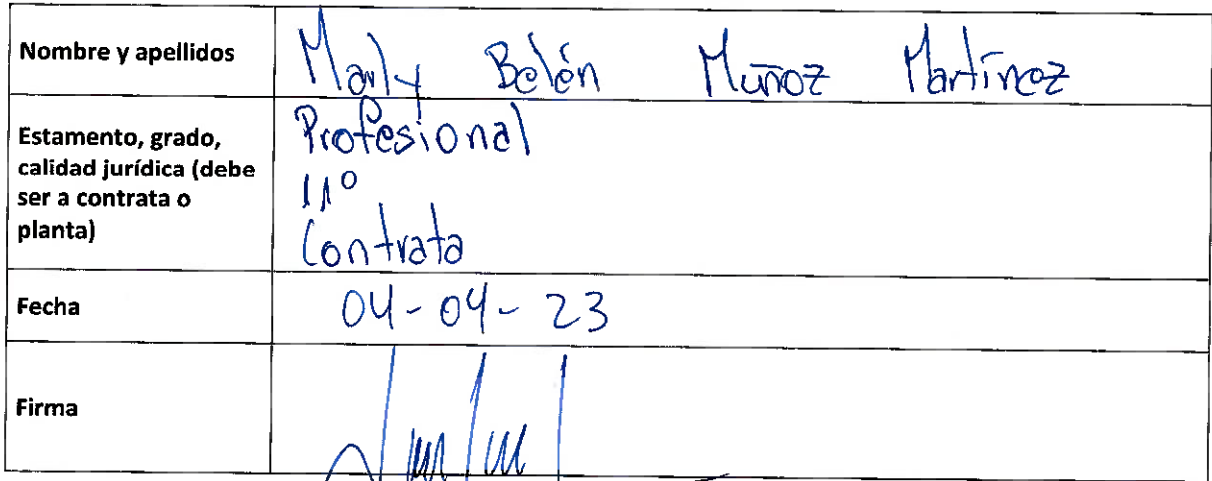 Nombre y apellidos
Marly Belén Muñoz Martínez
Estamento, grado,
calidad jurídica (debe
ser a contrata o
planta)
Profesional
11°
Contrata
Fecha
04-04-23
Firma